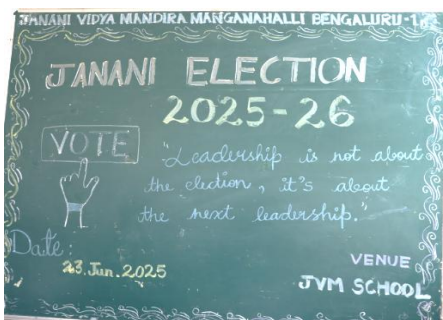 JANANI VIDYA MANDIRA MANGANAHALLI BENGALURU-1
JANANI ELECTION
2025-26
VOTE
"Leadership is not about
the election, it's about
the next leadership."
Date:
23.Jun.2025
VENUE
JVM SCHOOL